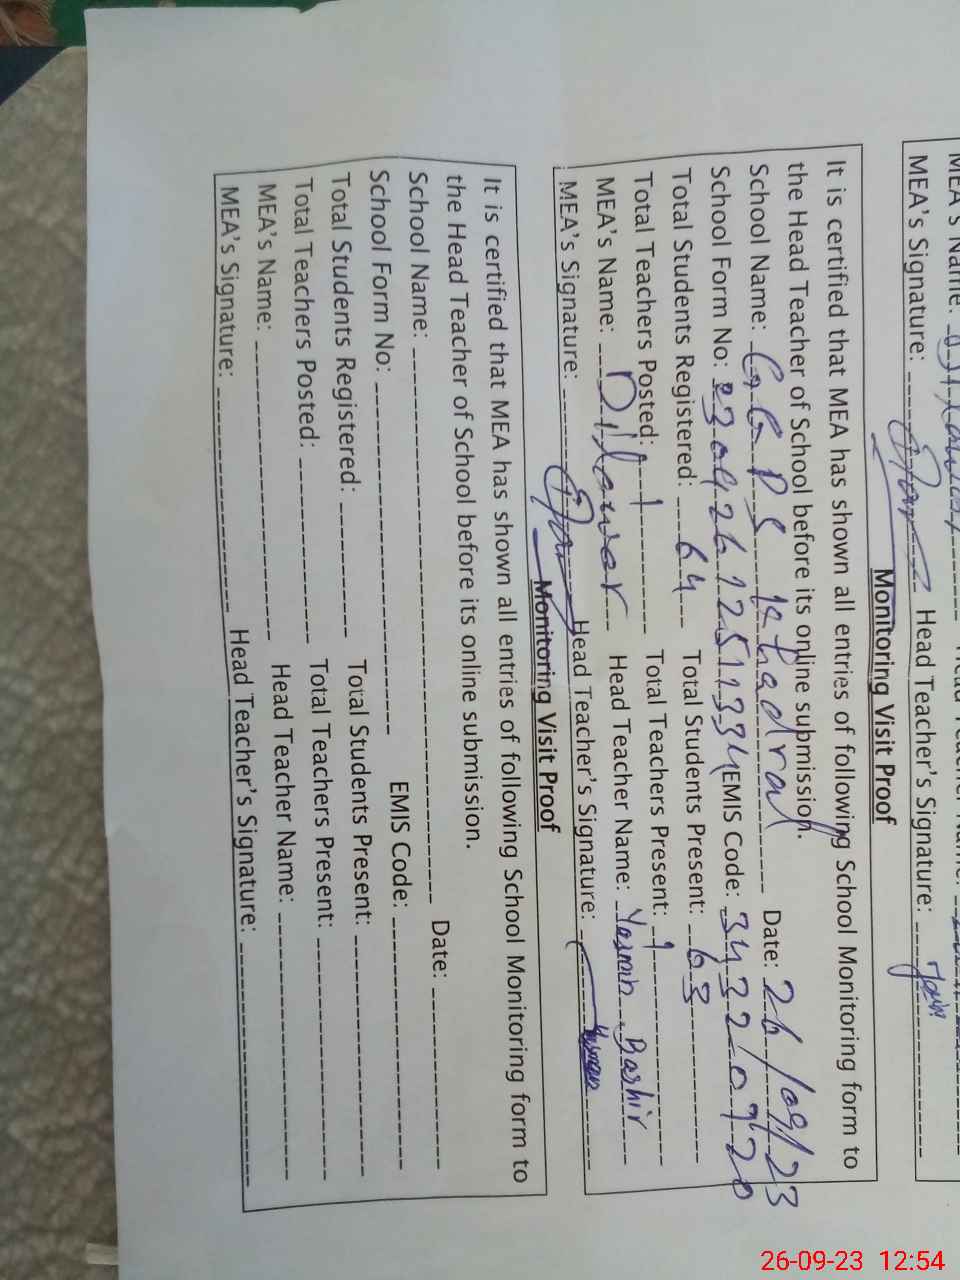 MEA's Name: Dilawar
MEA's Signature: Head Teacher's Signature:
Monitoring Visit Proof
It is certified that MEA has shown all entries of following School Monitoring form to
the Head Teacher of School before its online submission.
School Name: GGPS kathadral Date: 26/09/23
School Form No: 23092612511334 EMIS Code: 34320720
Total Students Registered: 64 Total Students Present: 63
Total Teachers Posted: 1 Total Teachers Present: 1
MEA's Name: Dilawar Head Teacher Name: Yasmin Bashir
MEA's Signature: Head Teacher's Signature:
Monitoring Visit Proof
It is certified that MEA has shown all entries of following School Monitoring form to
the Head Teacher of School before its online submission.
School Name: Date:
School Form No: EMIS Code:
Total Students Registered: Total Students Present:
Total Teachers Posted: Total Teachers Present:
MEA's Name: Head Teacher Name:
MEA's Signature: Head Teacher's Signature:
26-09-23 12:54